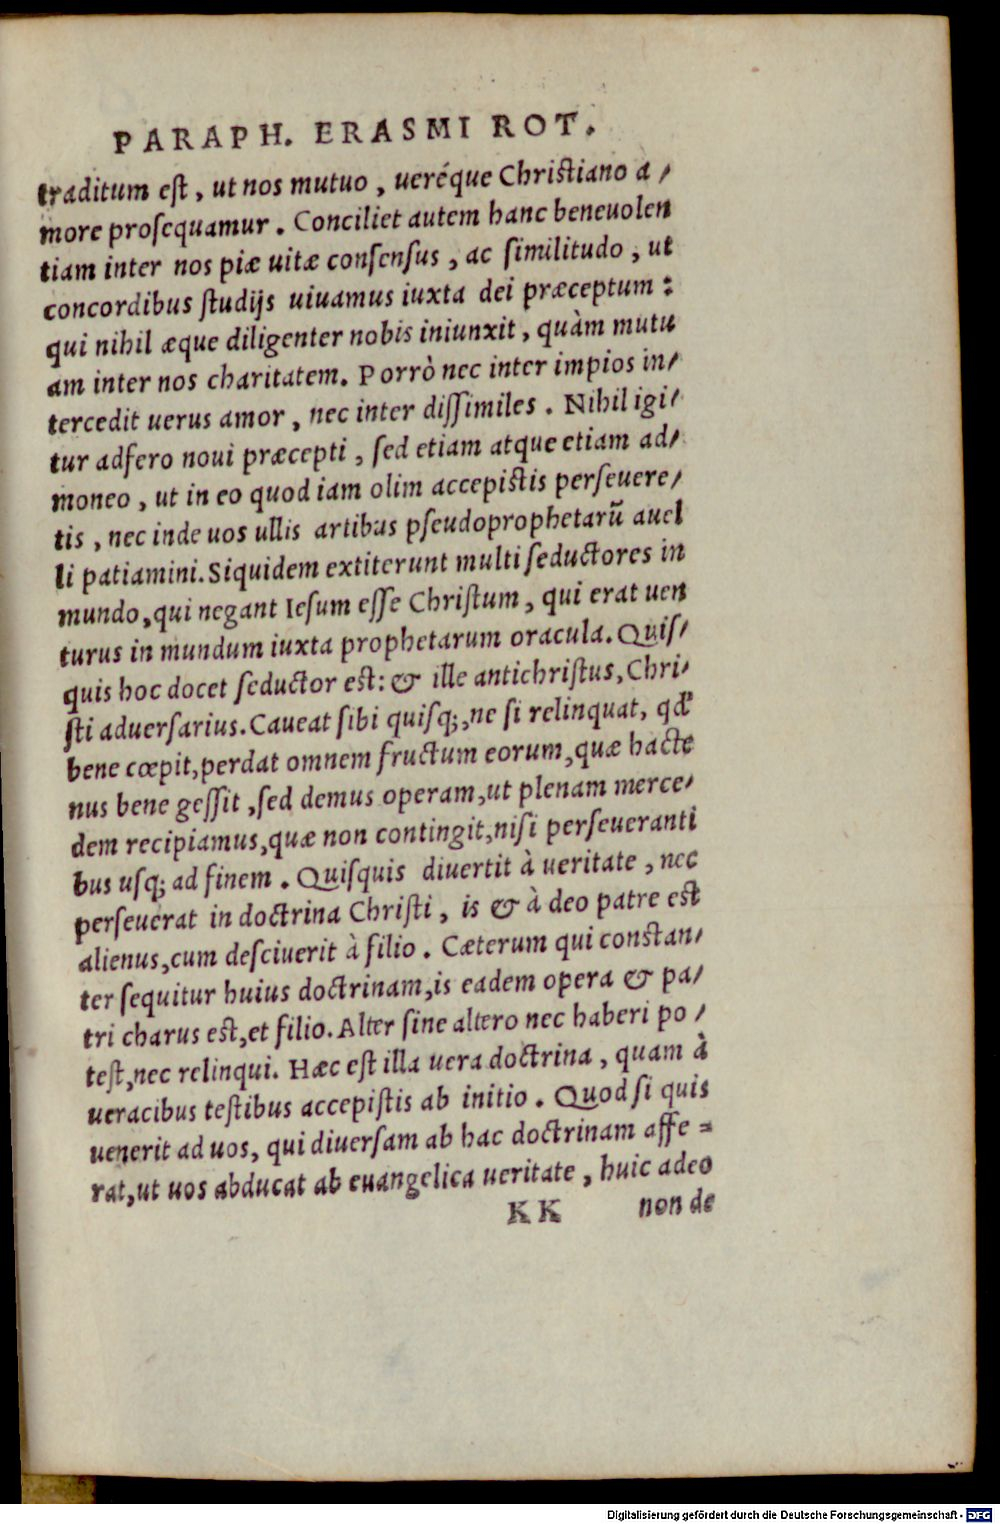 PARAPH. ERASMI ROT.
traditum est, ut nos mutuo, ueréque Christiano a/
more prosequamur. Conciliet autem hanc beneuolen
tiam inter nos piæ uitæ consensus, ac similitudo, ut
concordibus studijs uiuamus iuxta dei præceptum:
qui nihil æque diligenter nobis iniunxit, quàm mutu
am inter nos charitatem. Porrò nec inter impios in/
tercedit uerus amor, nec inter dissimiles. Nihil igi/
tur adfero noui præcepti, sed etiam atque etiam ad/
moneo, ut in eo quod iam olim accepistis perseuere/
tis, nec inde uos ullis artibus pseudoprophetarũ auel
li patiamini. Siquidem extiterunt multi seductores in
mundo, qui negant Iesum esse Christum, qui erat uen
turus in mundum iuxta prophetarum oracula. Quis/
quis hoc docet seductor est: & ille antichristus, Chri/
sti aduersarius. Caueat sibi quisq;, ne si relinquat, qđ
bene cœpit, perdat omnem fructum eorum, quæ hacte
nus bene gessit, sed demus operam, ut plenam merce/
dem recipiamus, quæ non contingit, nisi perseueranti
bus usq; ad finem. Quisquis diuertit à ueritate, nec
perseuerat in doctrina Christi, is & à deo patre est
alienus, cum desciuerit à filio. Cæterum qui constan/
ter sequitur huius doctrinam, is eadem opera & pa/
tri charus est, et filio. Alter sine altero nec haberi po/
test, nec relinqui. Hæc est illa uera doctrina, quam à
ueracibus testibus accepistis ab initio. Quod si quis
uenerit ad uos, qui diuersam ab hac doctrinam affe=
rat, ut uos abducat ab euangelica ueritate, huic adeo
KK non de
Digitalisierung gefördert durch die Deutsche Forschungsgemeinschaft - DFG